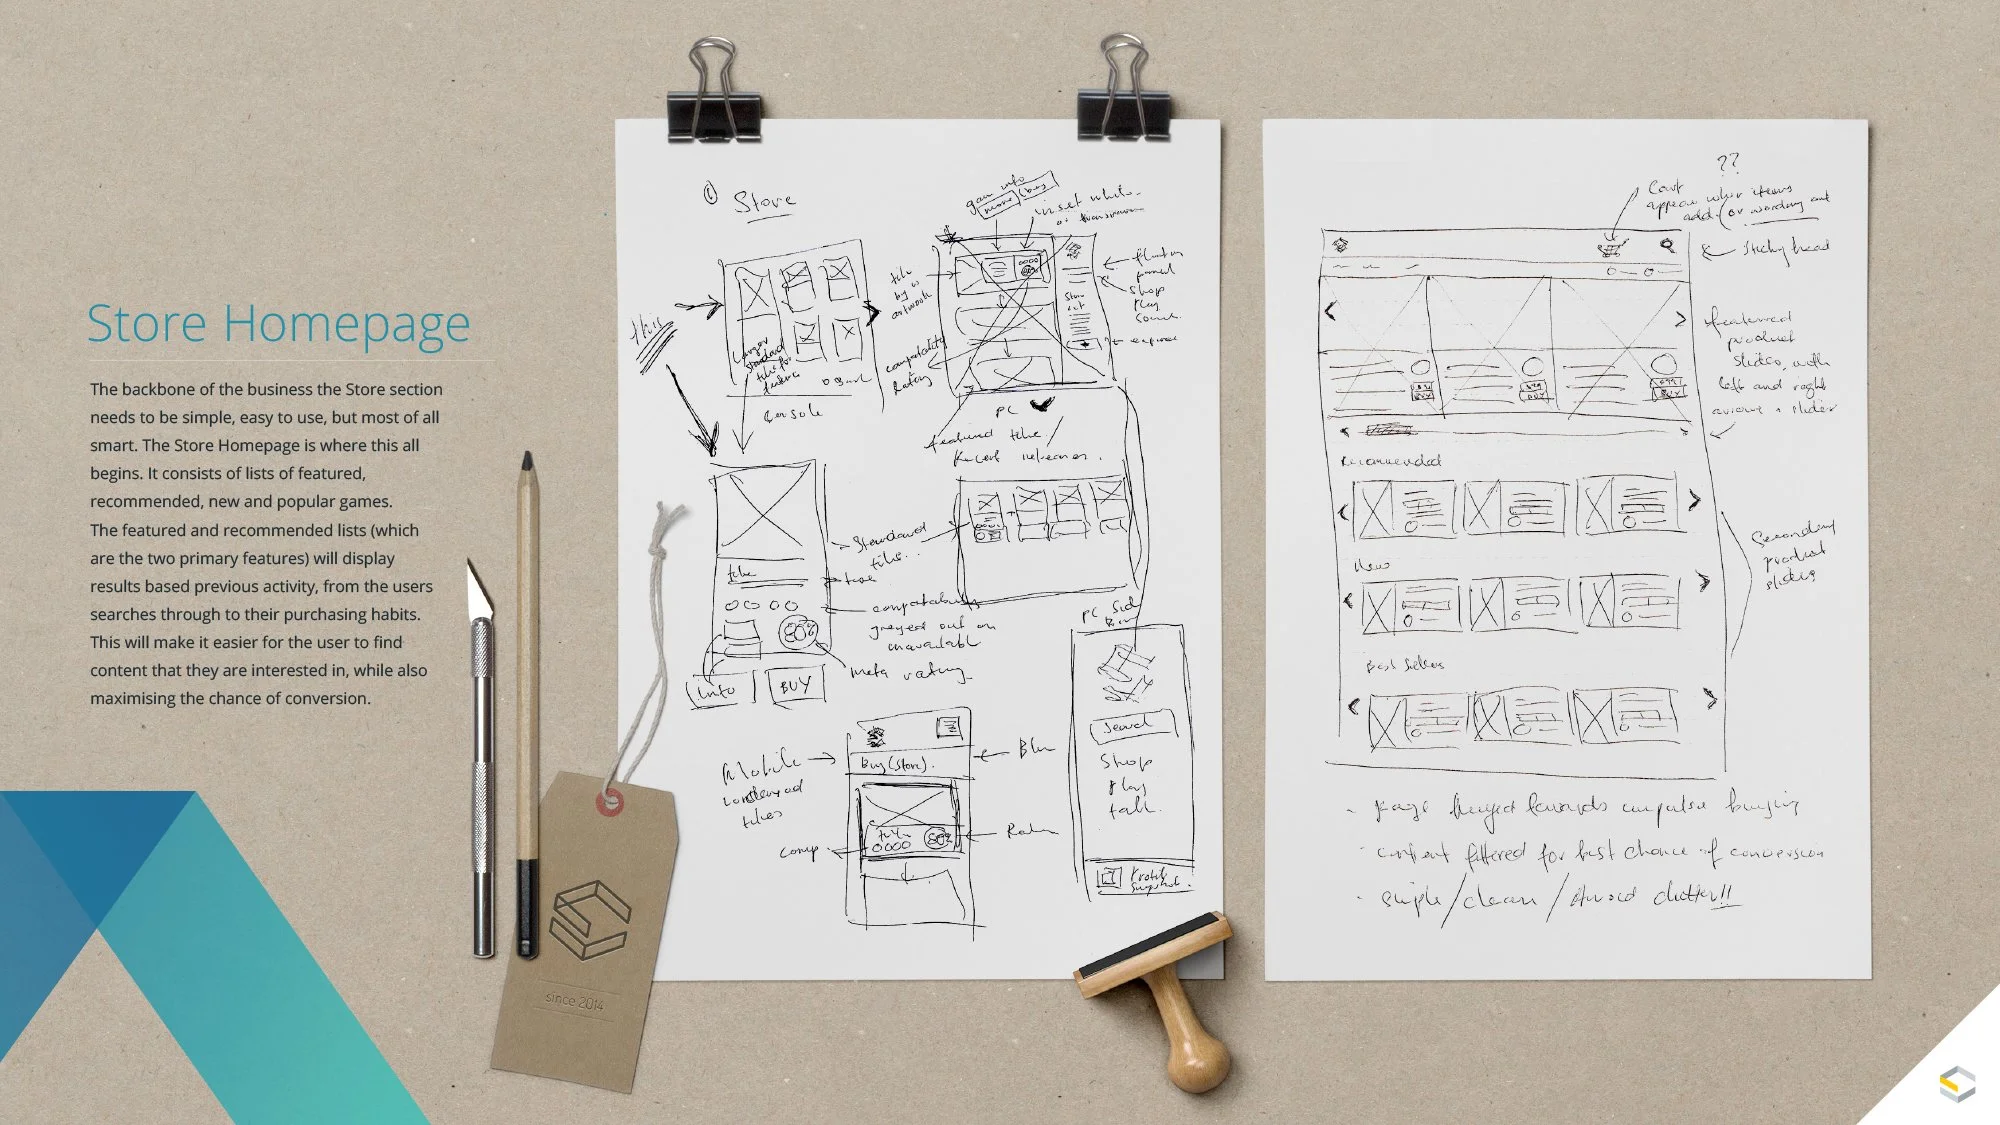 Store Homepage
The backbone of the business the Store section
needs to be simple, easy to use, but most of all
smart. The Store Homepage is where this all
begins. It consists of lists of featured,
recommended, new and popular games.
The featured and recommended lists (which
are the two primary features) will display
results based previous activity, from the users
searches through to their purchasing habits.
This will make it easier for the user to find
content that they are interested in, while also
maximising the chance of conversion.
since 2014
Store
game info
more
buy
inset white
this
title
by
artwork
Larger
standard
tiles for
features
Console
compatability
Rating
Shop
Play
PC
featured title /
Recent releases.
Standard
tiles..
title
compatability
greyed out on
unavailable
80%
meta rating
info
BUY
Mobile
tiles
Buy (Store).
Blur
comp
80%
PC Side
Search
Shop
Play
talk.
Profile
Snapshot.
??
Cart
appear when items
add.
Sticky head
featured
product
slides, with
left and right
arrows + slider
BUY
BUY
BUY
Recommended
New
Best Sellers
Secondary
product
slides
- Page hinged towards impulse buying
- content filtered for best chance of conversion
- Simple/clean/Avoid clutter!!